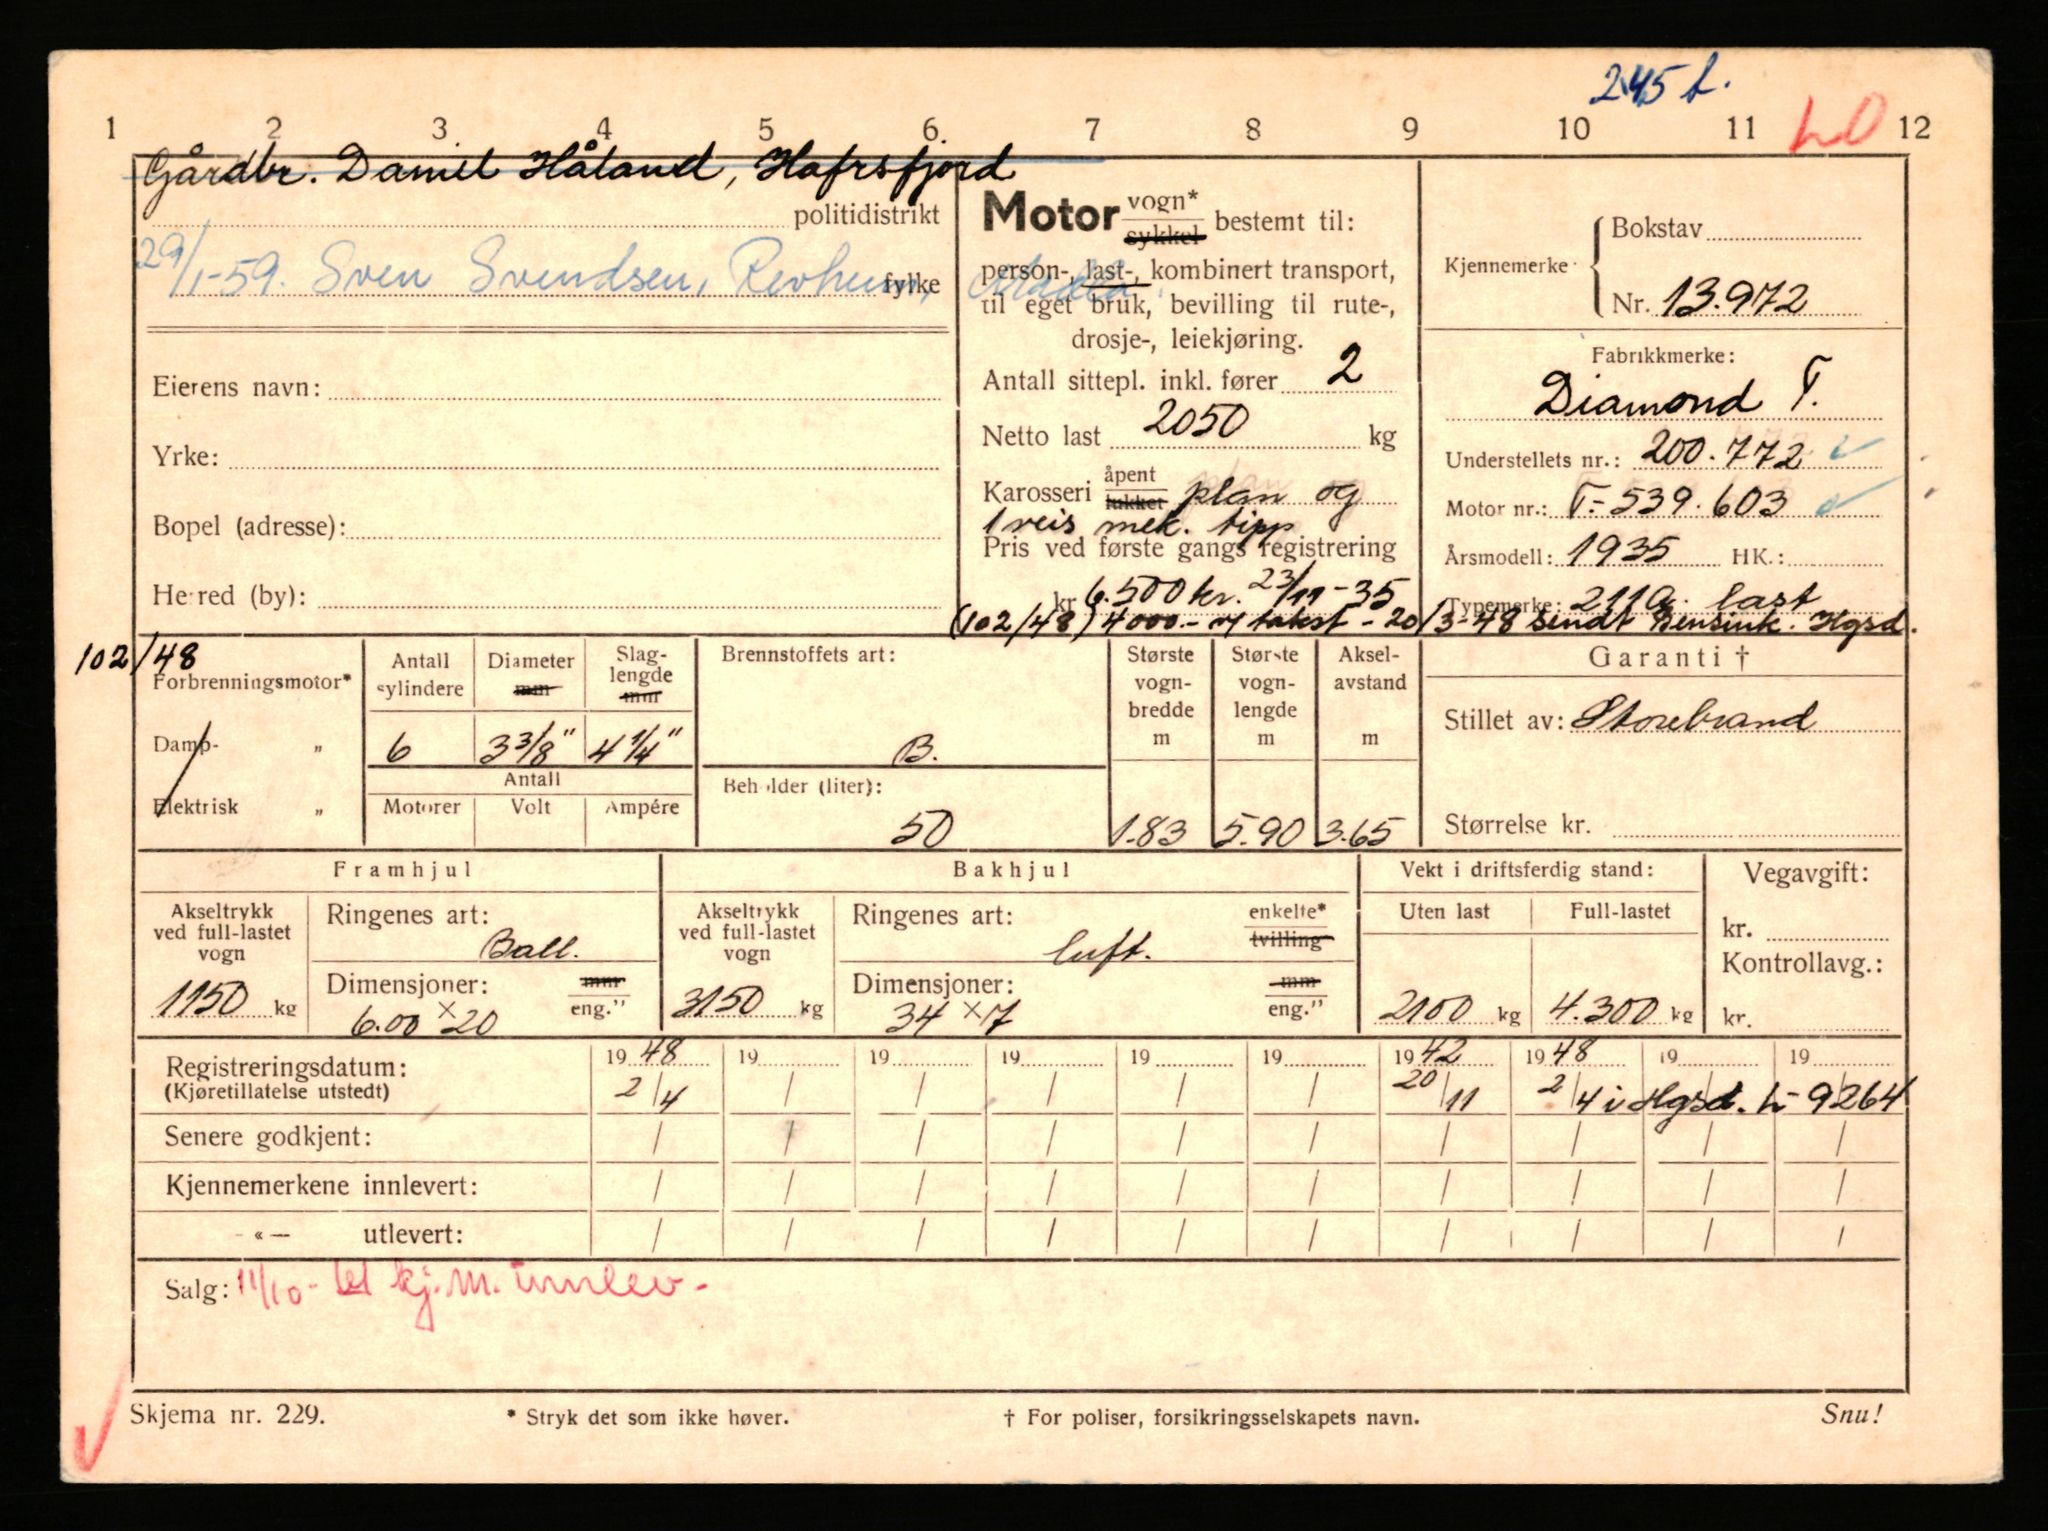 245 l.
1 2 3 4 5 6. 7 8 9 10 11 12
Gårdbr. Daniel Håland, Hafrsfjord
politidistrikt
29/1-59. Sven Svendsen, Revheim, Madla.
fylke
Eierens navn:
Yrke:
Bopel (adresse):
Herred (by):
Motor vogn* sykkel bestemt til:
person-, last-, kombinert transport,
til eget bruk, bevilling til rute-,
drosje-, leiekjøring.
Antall sittepl. inkl. fører 2
Netto last 2050 kg
Karosseri åpent lukket plan og
1 veis mek. tipp
Pris ved første gangs registrering
kr 6.500 kr. 23/11-35
(102/48) 4000.- takst - 20/3-48 sendt Bensink. Hgsd.
Kjennemerke
Bokstav
Nr. 13.972
Fabrikkmerke:
Diamond T.
Understellets nr.: 200.772
Motor nr.: T-539.603
Årsmodell: 1935 HK.:
Typemerke: 211a last
102/48
Forbrenningsmotor*
Damp- „
Elektrisk „
Antall sylindere
6
Diameter mm
3 3/8"
Slaglengde mm
4 1/4"
Antall
Motorer Volt Ampére
Brennstoffets art:
B.
Beholder (liter):
50
Største vognbredde m
1.83
Største vognlengde m
5.90
Akselavstand m
3.65
Garanti †
Stillet av: Storebrand
Størrelse kr.
Framhjul
Akseltrykk
ved full-lastet
vogn
1150 kg
Ringenes art:
Ball.
Dimensjoner: mm eng."
6.00 x 20
Bakhjul
Akseltrykk
ved full-lastet
vogn
3150 kg
Ringenes art: enkelte* tvilling
luft.
Dimensjoner: mm eng."
34 x 7
Vekt i driftsferdig stand:
Uten last Full-lastet
2100 kg 4.300 kg
Vegavgift:
kr.
Kontrollavg.:
kr.
Registreringsdatum: 19 48 19 19 19 19 19 19 42 19 48 19 19
(Kjøretillatelse utstedt) 2/4 / / / / / 20/11 2/4 i Hgsd. L-9264
Senere godkjent: / / / / / / / / / /
Kjennemerkene innlevert: / / / / / / / / / /
- «- utlevert: / / / / / / / / / /
Salg: 11/10- kj.m. innlev-
Skjema nr. 229. * Stryk det som ikke høver. † For poliser, forsikringsselskapets navn. Snu!